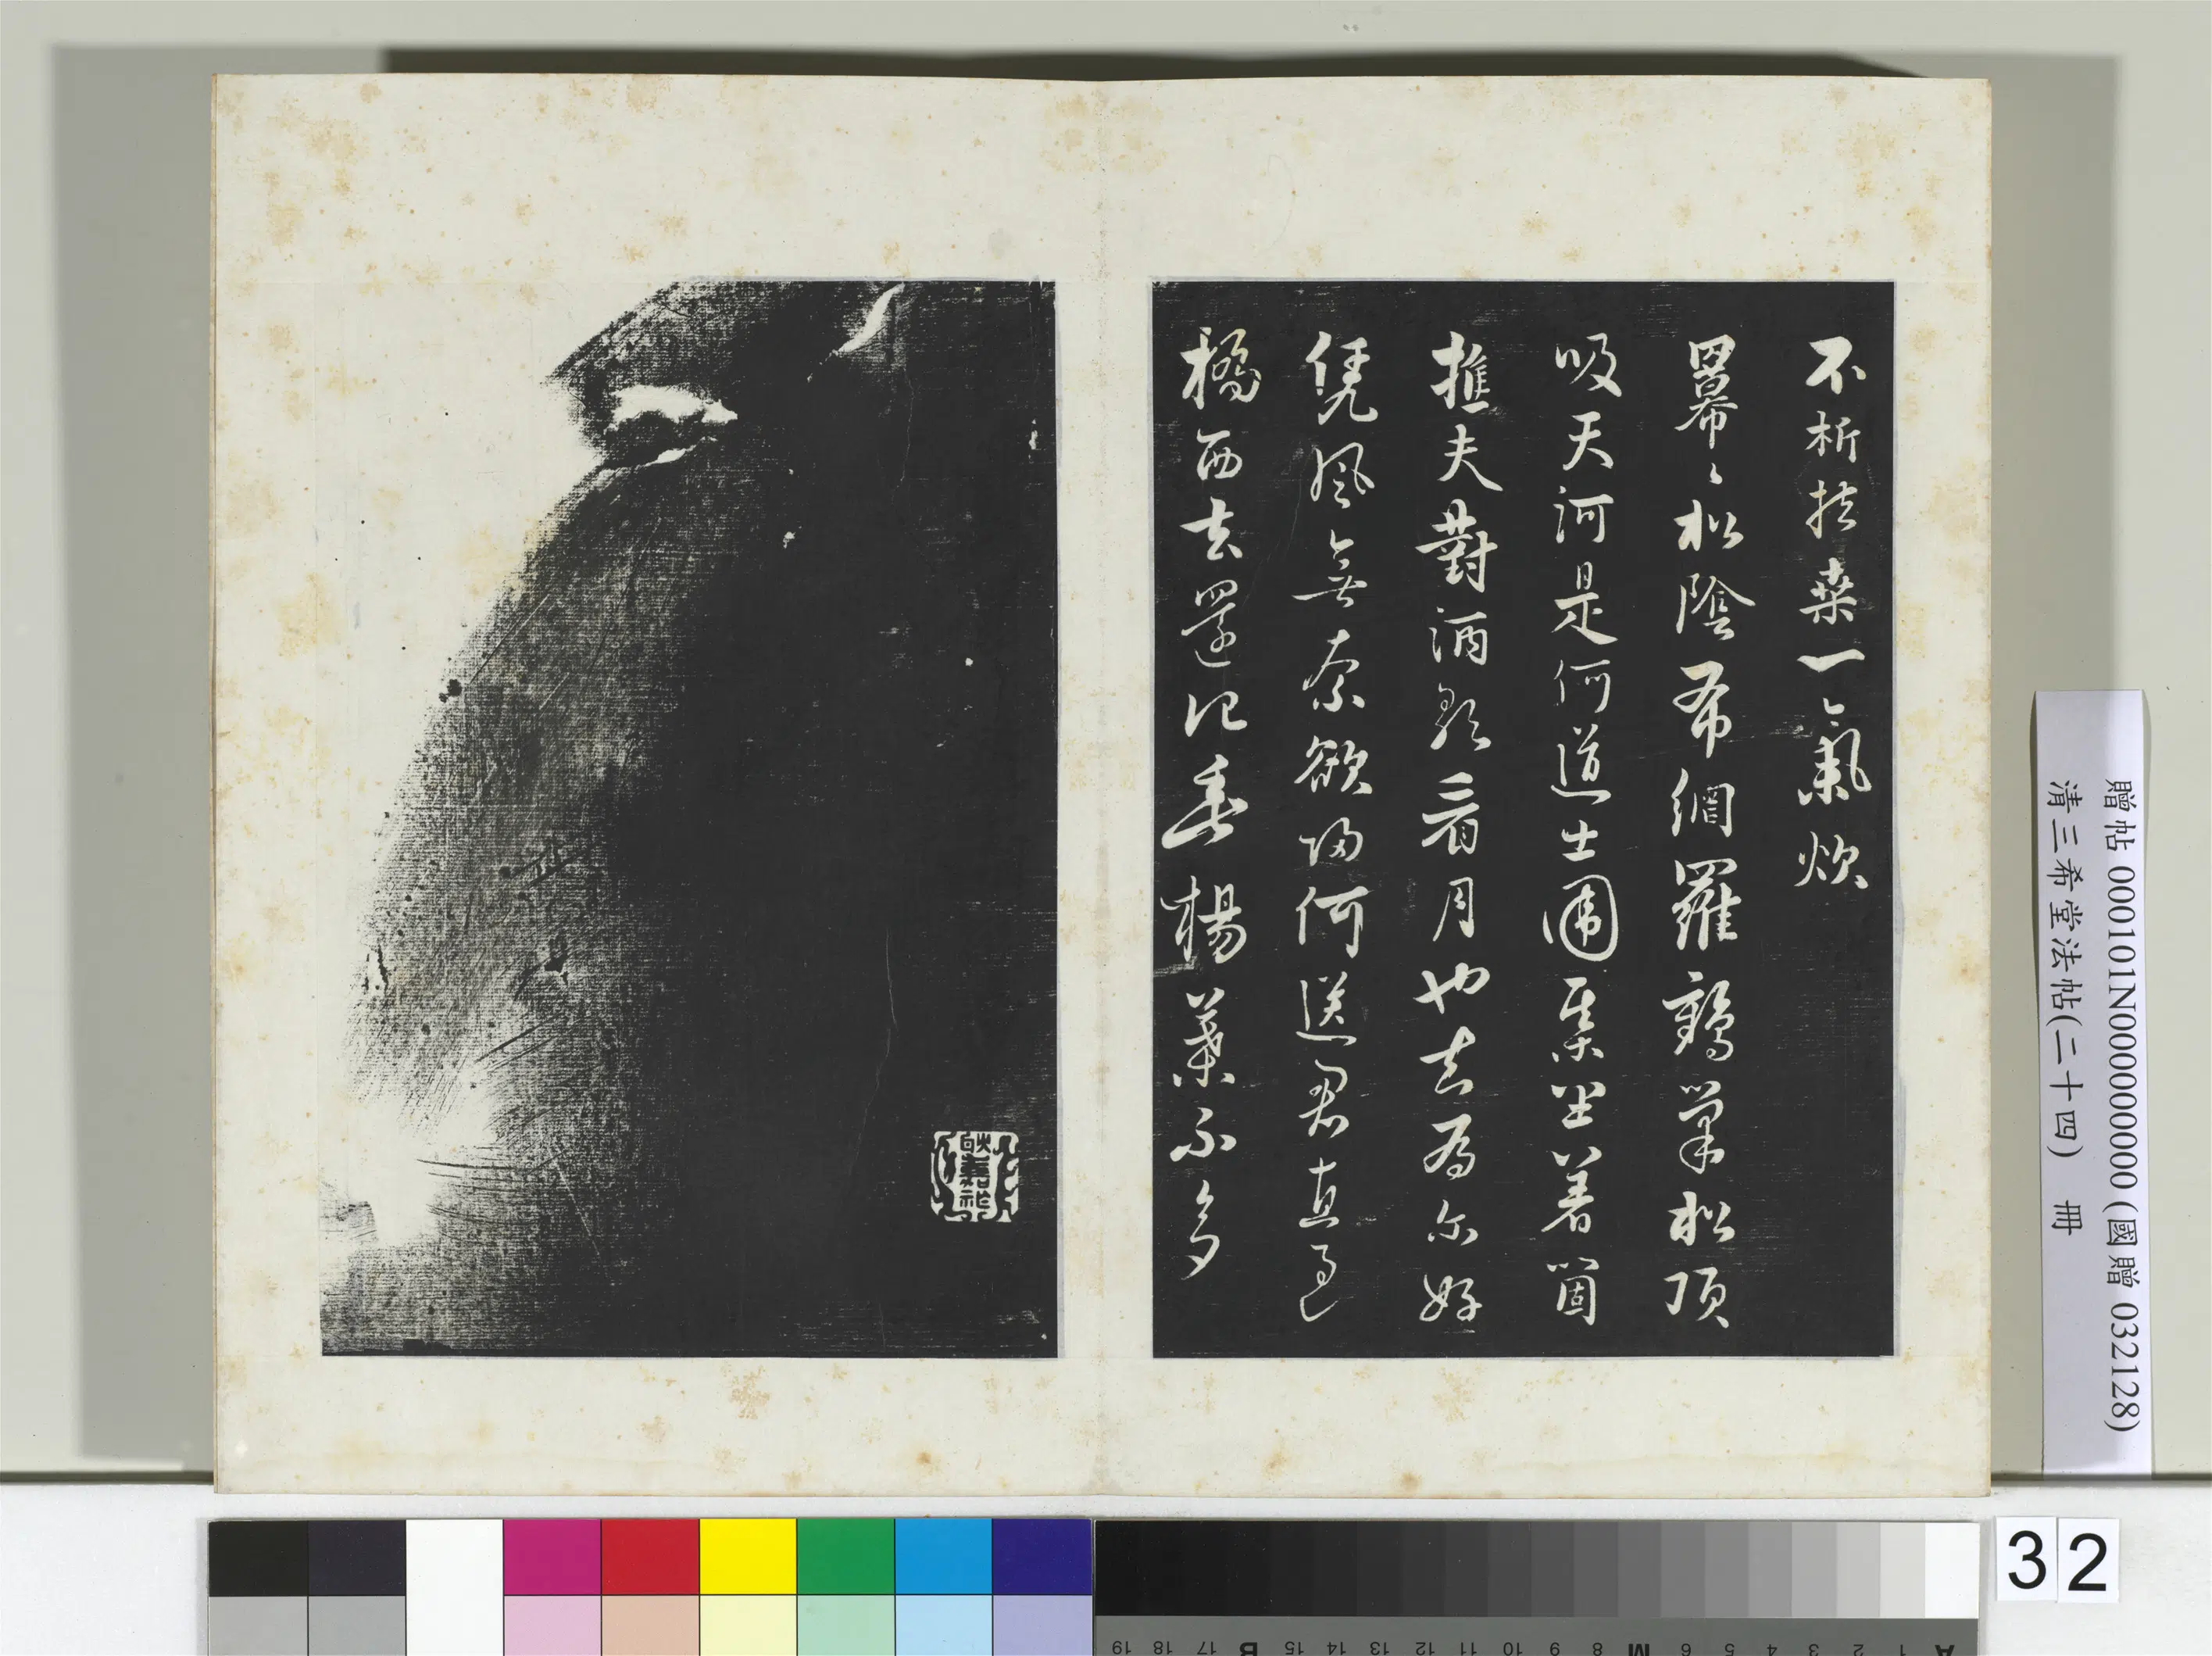 不析扶桑一氣炊
冪〻松陰布網羅鶴松頂
吸天河是何道士圍棊坐著箇
樵夫對酒歌看月也去為尔好
凭風無奈欲歸何送君直過
橋西去還記垂楊葉不多
贈帖 000101N000000000 (國贈 032128)
清三希堂法帖(二十四) 冊
32
A 1 2 3 4 5 6 M 8 9 10 11 12 13 14 15 B 17 18 19